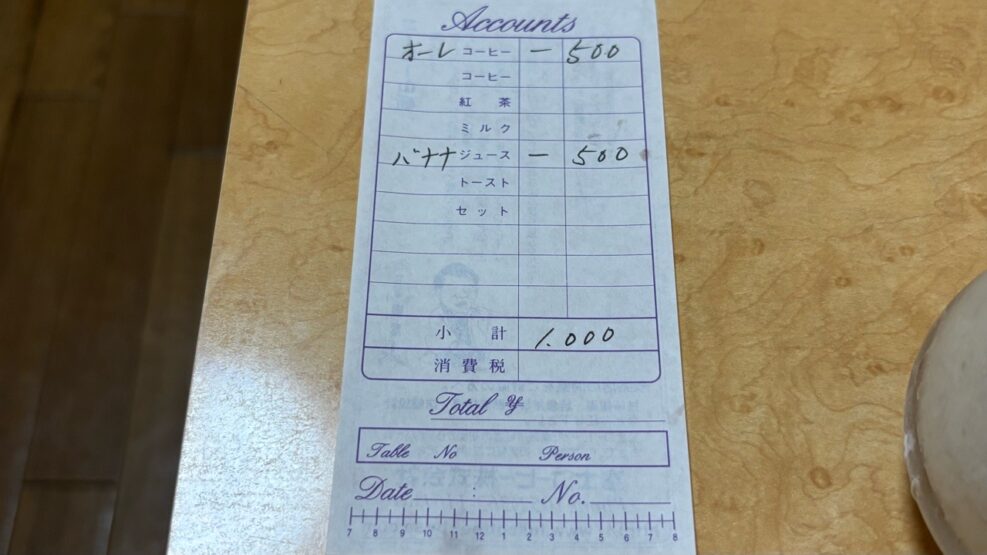 Accounts
オーレ コーヒー 一 500
コーヒー
紅 茶
ミルク
バナナ ジュース 一 500
トースト
セット
小 計 1.000
消費税
Total ¥
Table No Person
Date : No.
7 8 9 10 11 12 1 2 3 4 5 6 7 8